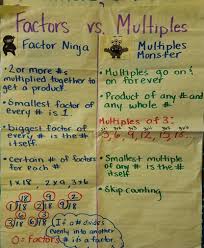 Factors vs. Multiples
Factor Ninja
• 2 or more #s
multiplied together to
get a product.
• Smallest factor of
every # is 1.
• biggest factor of
every # is the #
itself.
• Certain # of factors
for each #
1x18, 2x9, 3x6
18 18 18
1 18 9 2
3 6
If a # divides
evenly into another
#, it's a factor.
= Factors
Multiples
Monster
• Multiples go on &
on forever
• Product of any # and
any whole #.
Multiples of 3:
3, 6, 9, 12, 15
• Smallest multiple
of any # is the #
itself
• Skip counting